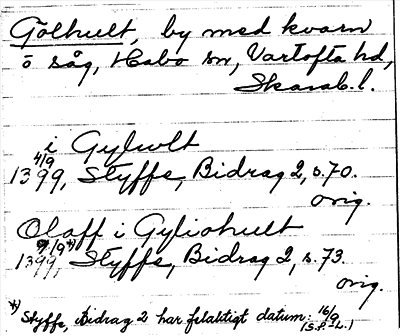 Gölhult, by med kvarn
o såg, Habo sn, Vartofta hd,
Skarab. l.
i Gylwlt
4/9
1399, Styffe, Bidrag 2, s. 70.
orig.
Olaff i Gyliohult
9/9 *)
1399, Styffe, Bidrag 2, s. 73.
orig.
*) Styffe, Bidrag 2 har felaktigt datum: 16/9
(S.P-L.)